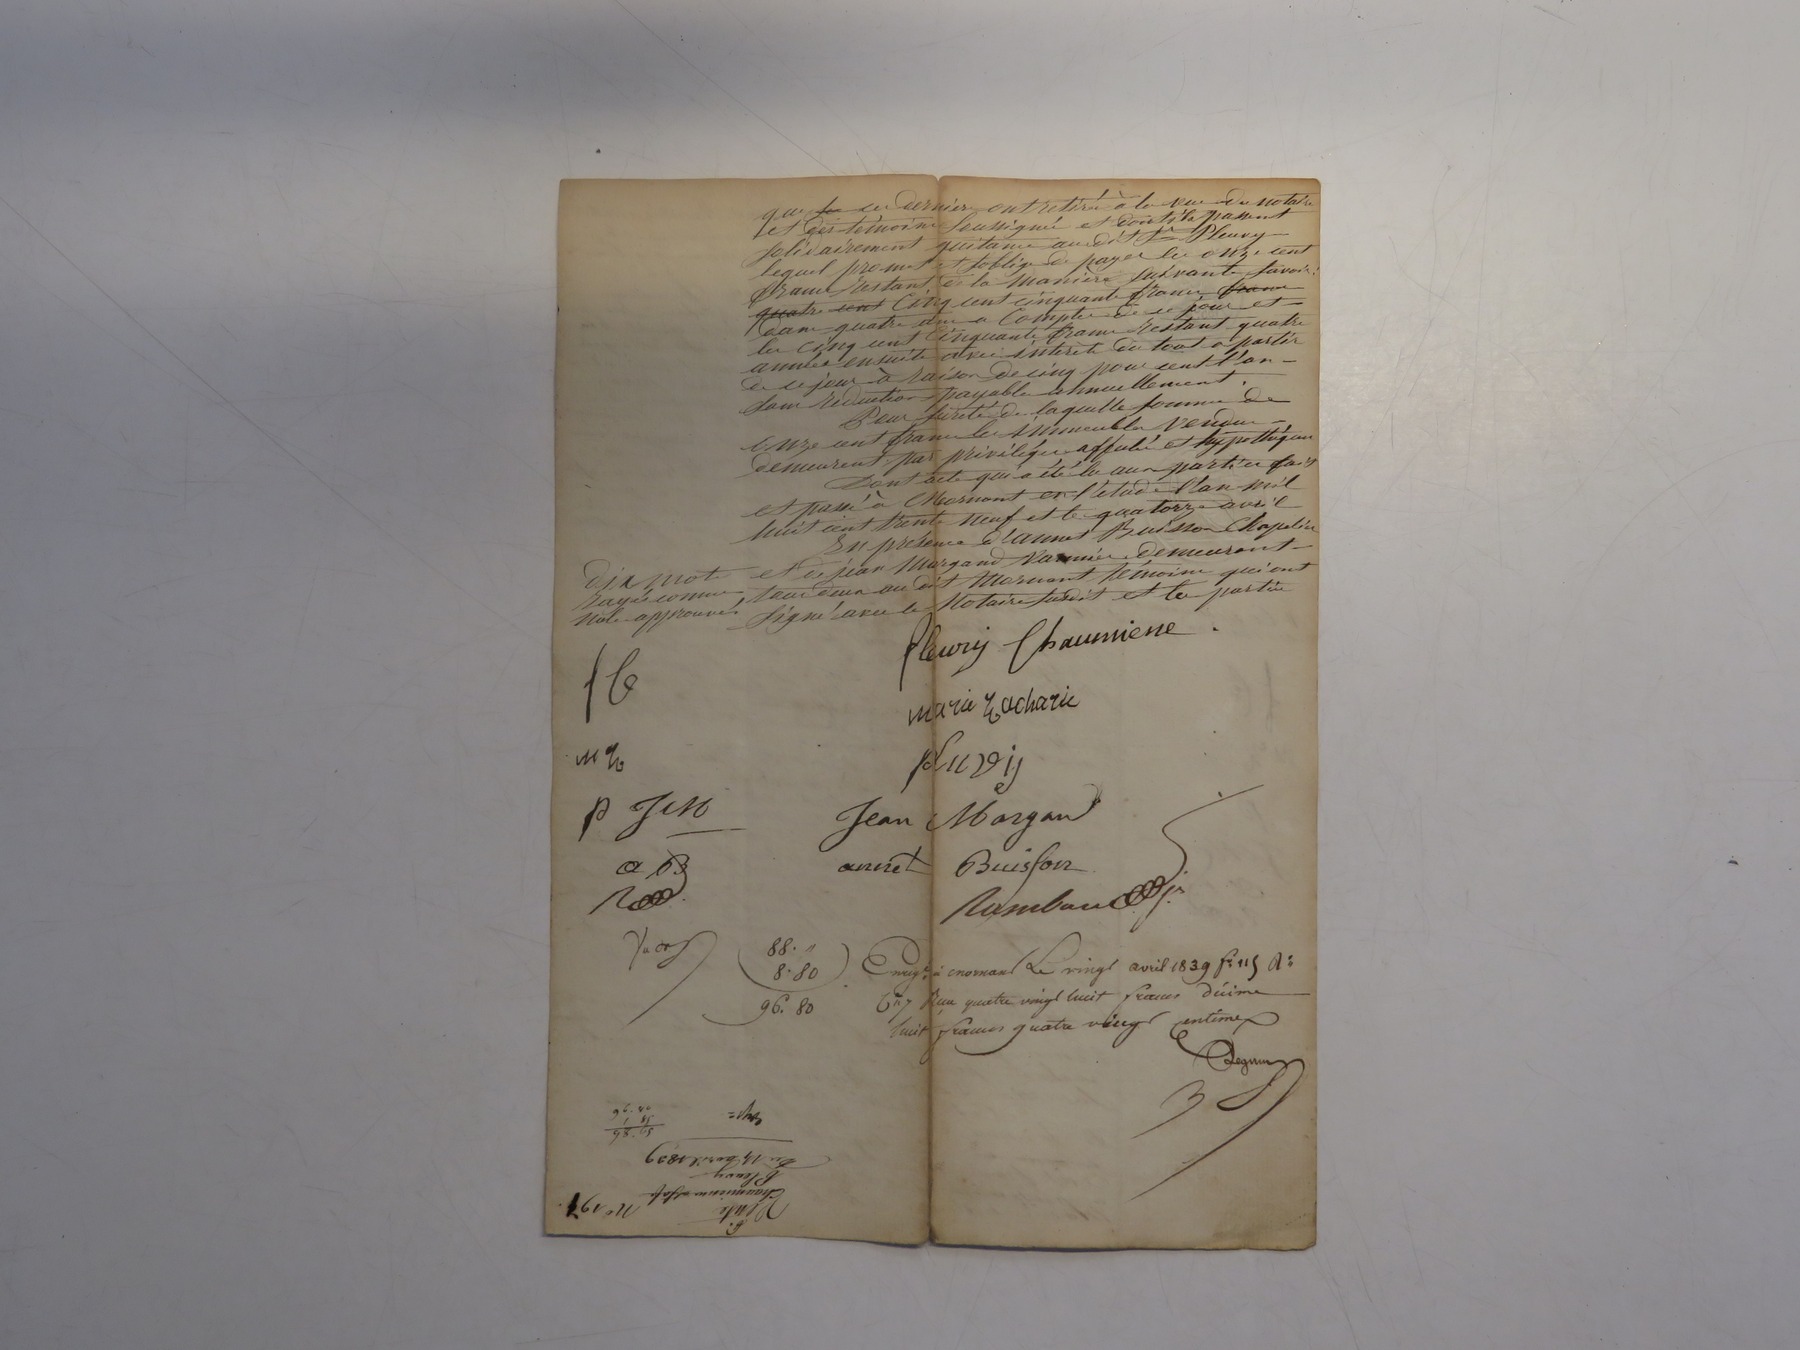 que ces derniers ont retiré à la vue du notaire
et des témoins soussignés et dont ils passent
solidairement quitance audit Sr Pleuvy
lequel promet et s'oblige de payer les onze cent
francs restant de la manière suivante savoir:
quatre cent cinq cent cinquante francs francs
dans quatre ans a compter de ce jour et
les cinq cent cinquante francs restant quatre
années ensuite avec intérêt du tout a partir
de ce jour à raison de cinq pour cent l'an
sans réduction payable annuellement.
Pour sûreté de laquelle somme de
onze cent francs les immeubles vendus
demeurent par privilège affecté et hypothéqué
Dont acte qui a été lu aux parties fait
et passé à Mornant en l'étude l'an mil
huit cent trente neuf et le quatorze avril
En présence d'annet Buisson Chapelier
et de jean Morgand demeurant
tous deux au dit Mornant témoins qui ont
signé avec le Notaire susdit et les parties
Dix mots
rayés comme
nuls approuvés
fleury Chaumiene.
fC
marie Zacharie
mZ
pluvy
p JM
Jean Morgand
a B
annet Buisson
88. "
8. 80
96. 80
Enregt à mornant Le vingt avril 1839 fo 115 Ro
Reçu quatre vingt huit francs décime
huit francs quatre vingt centimes
No 197
Vente
Chaumienne
Pleuvy
Du 14 avril 1839